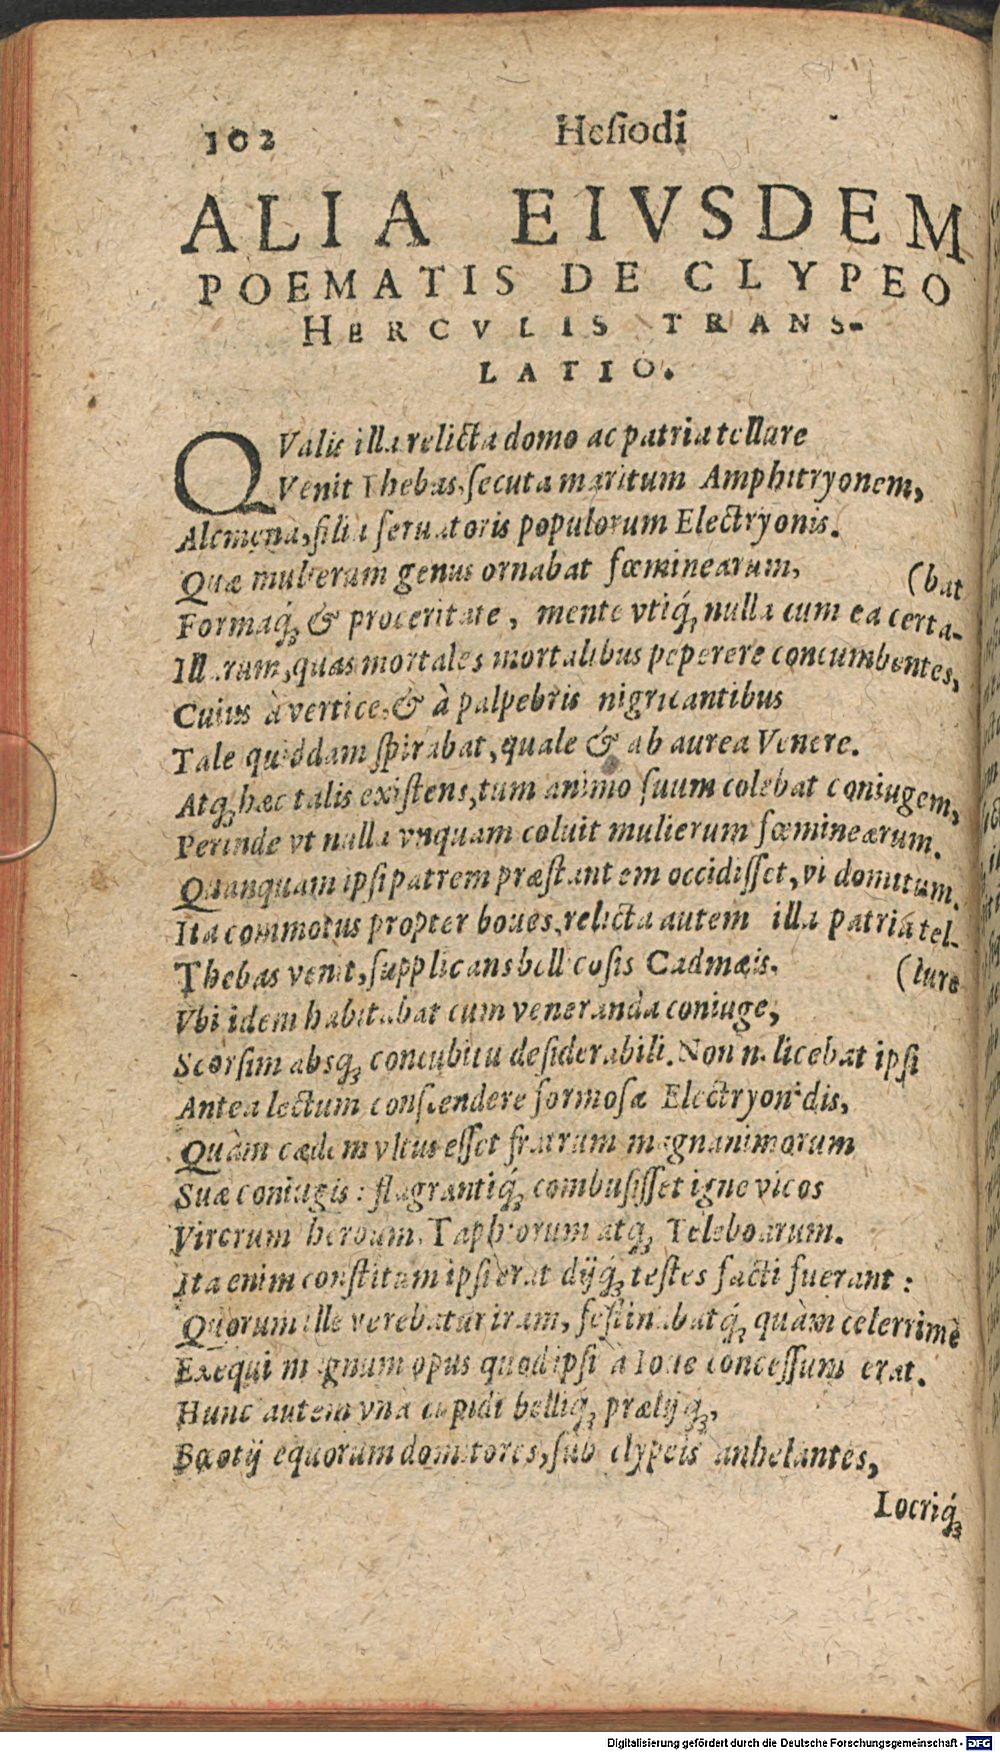 102 Heſiodi
ALIA EIVSDEM
POEMATIS DE CLYPEO
HERCVLIS TRANS-
LATIO.
QValis illa relicta domo ac patria tellure
Venit Thebas, ſecuta maritum Amphitryonem,
Alcmena, filia ſeruatoris populorum Electryonis.
Quæ mulierum genus ornabat fœminearum, (bat
Formaq́ꝫ & proceritate, mente vtiq́ꝫ nulla cum ea certa-
Illarum, quas mortales mortalibus peperere concumbentes,
Cuius à vertice, & à palpebris nigricantibus
Tale quoddam ſpirabat, quale & ab aurea Venere.
Atqꝫ hæc talis exiſtens, tum animo ſuum colebat coniugem,
Perinde vt nulla vnquam coluit mulierum fœminearum.
Quanquam ipſi patrem præſtantem occidiſſet, vi domitum.
Ita commotus propter boues, relicta autem illa patria tel-
Thebas venit, ſupplicans bellicoſis Cadmæis. (lure
Vbi idem habitabat cum veneranda coniuge,
Seorſim absqꝫ concubitu deſiderabili. Non n. licebat ipſi
Antea lectum conſcendere formoſæ Electryonidis,
Quàm cædem vltus eſſet fratrum magnanimorum
Suæ coniugis: flagrantiq́ꝫ combuſiſſet igne vicos
Virorum heroum, Taphiorum atqꝫ Teleboarum.
Ita enim conſtitutum ipſi erat dijq́ꝫ teſtes facti fuerant:
Quorum ille verebatur iram, feſtinabatq́ꝫ quàm celerrimè
Exequi magnum opus quod ipſi à Ioue conceſſum erat.
Hunc autem vnà cupidi belliq́ꝫ prælijq́ꝫ,
Bœotij equorum domitores, ſub clypeis anhelantes,
Locriq́ꝫ
Digitalisierung gefördert durch die Deutsche Forschungsgemeinschaft - DFG